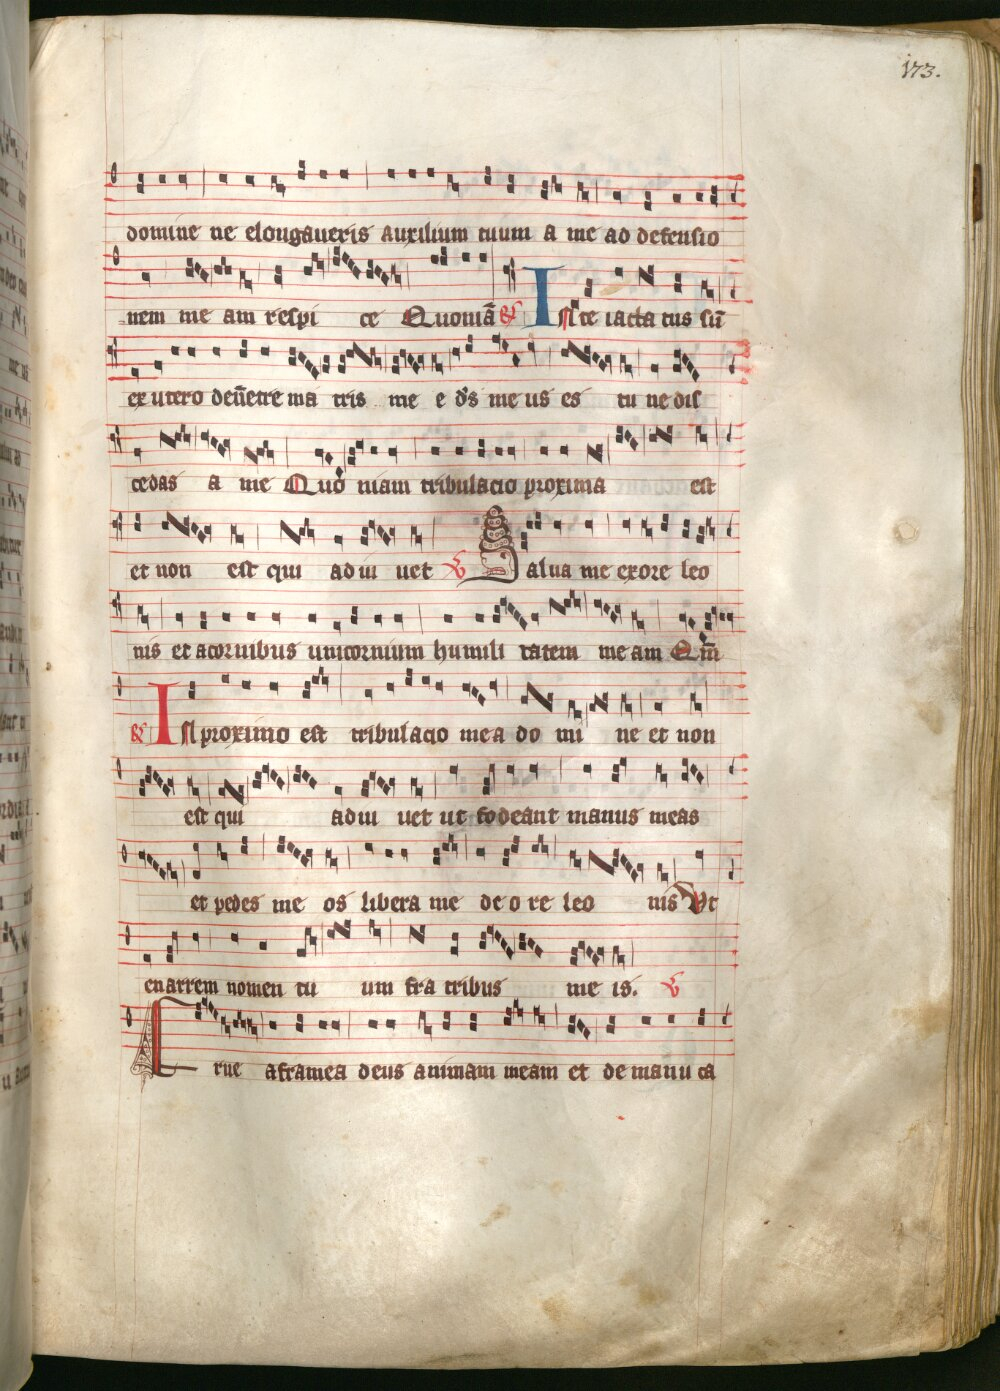 173.
domine ne elongaveris auxilium tuum a me ad defensio
nem me am respi ce Quoniā R In te iacta tus sū
ex utero de ūetre ma tris me e d̄s me us es tu ne dis
cedas a me Quo niam tribulacio proxima est
et non est qui ad iu uet V Salua me ex ore leo
nis et a cornibus unicornium humili tatem me am Qm̄
R In proximo est tribulacio mea do mi ne et non
est qui ad iu uet ut fodeant manus meas
et pedes me os libera me de o re leo nis Ut
enarrem nomen tu um fra tribus me is. V
Erue a framea deus animam meam et de manu ca